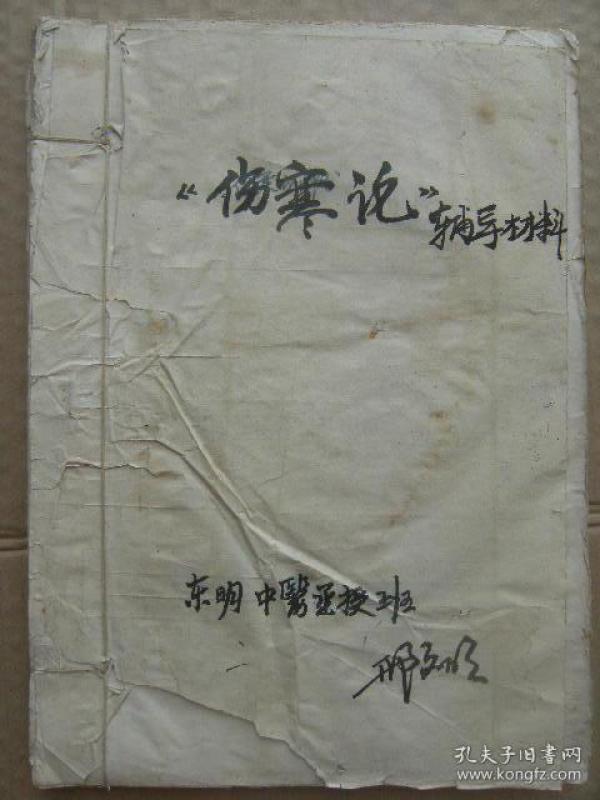 “伤寒论”辅导材料
东明中醫函授班
邢
孔夫子旧书网
www.kongfz.com